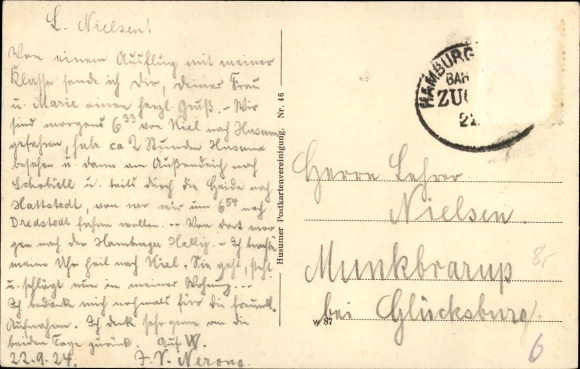 L. Nielsen!
Von einem Ausflug mit meiner
Klasse sende ich Dir, Deiner Frau
u. Marie einen herzl. Gruß. - Wir
sind morgens 6 33 von Kiel nach Husum
gefahren, habe ca 2 Stunden Husum
besehen u. dann am Außendeich nach
Schobüll u. teils durch die Heide nach
Hattstedt, von wo wir um 6 54 nach
Bredstedt fahren wollen. -- Von dort morgen
nach der Hamburger Hallig. - Ich brachte
meine Uhr heil nach Kiel. Sie geht, steht
u. schlägt nun in meiner Wohnung. ..
Ich bedanke mich nochmals für die freundl.
Aufnahme. Ich denk sehr gerne an die
beiden Tage zurück. Auf W.
22.9.24.
Husumer Postkartenvereinigung. Nr. 46
HAMBURG
BAH
ZUG
22
Herrn Lehrer
Nielsen
Munkbrarup
bei Glücksburg
W 87
6